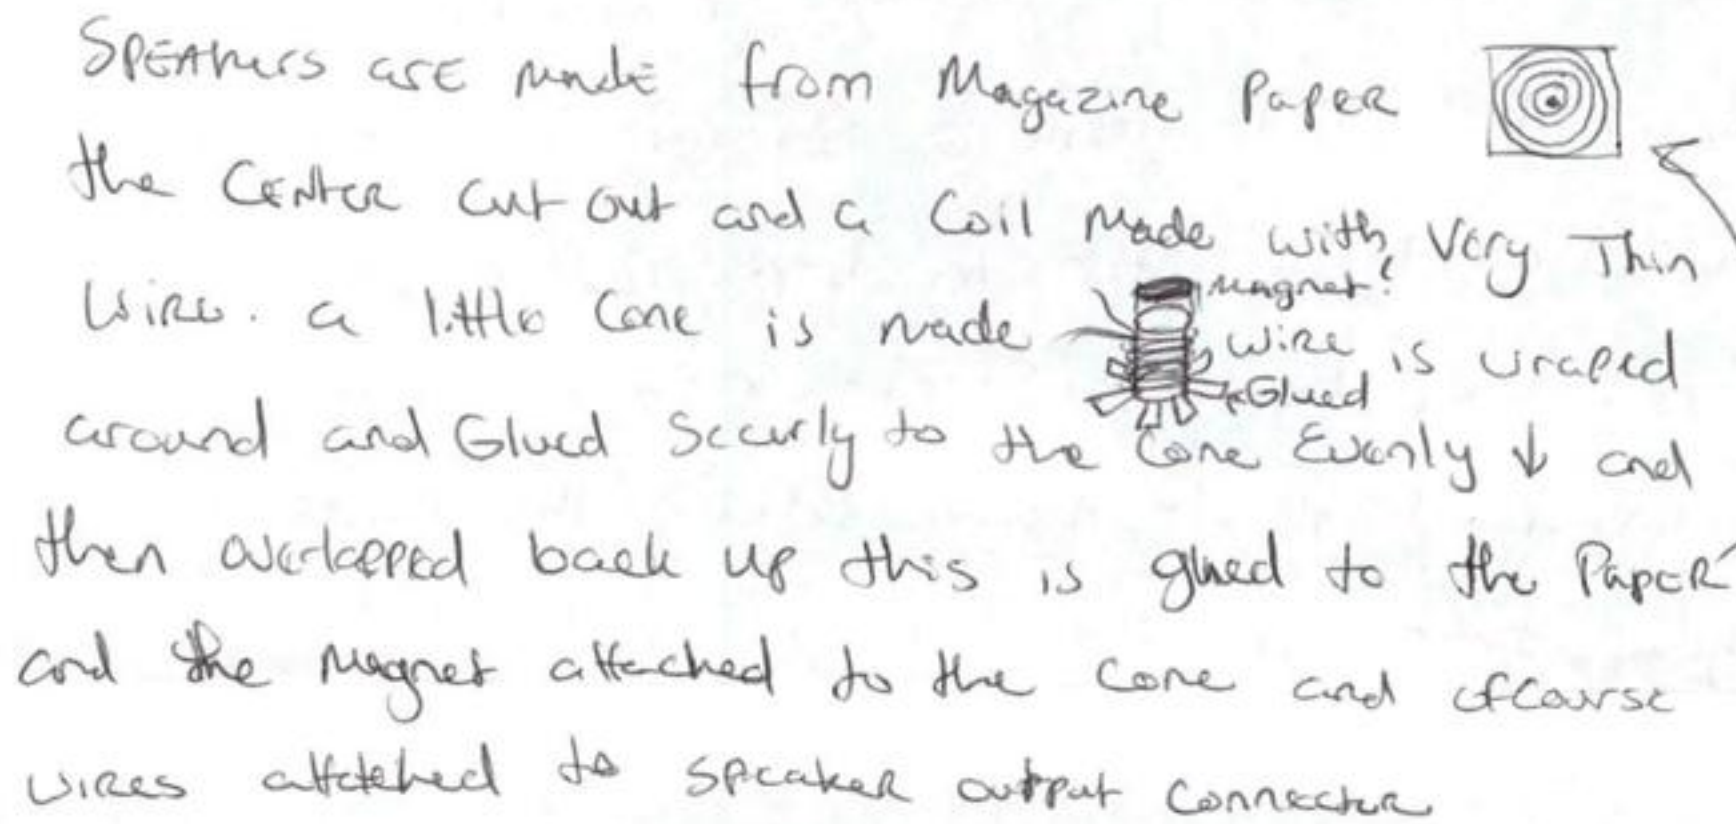 SPEAkers arE madE from Magazine PapeR
the CENteR cut out and a Coil Made with Very Thin
wire. a little Cone is made
magnet!
Wire is wraped
Glued
around and Glued Securly to the Cone Evenly ↓ and
then overlapped back up this is glued to the PapER
and the Magnet attached to the Cone and ofcourse
wires attatched to speaker output connecter